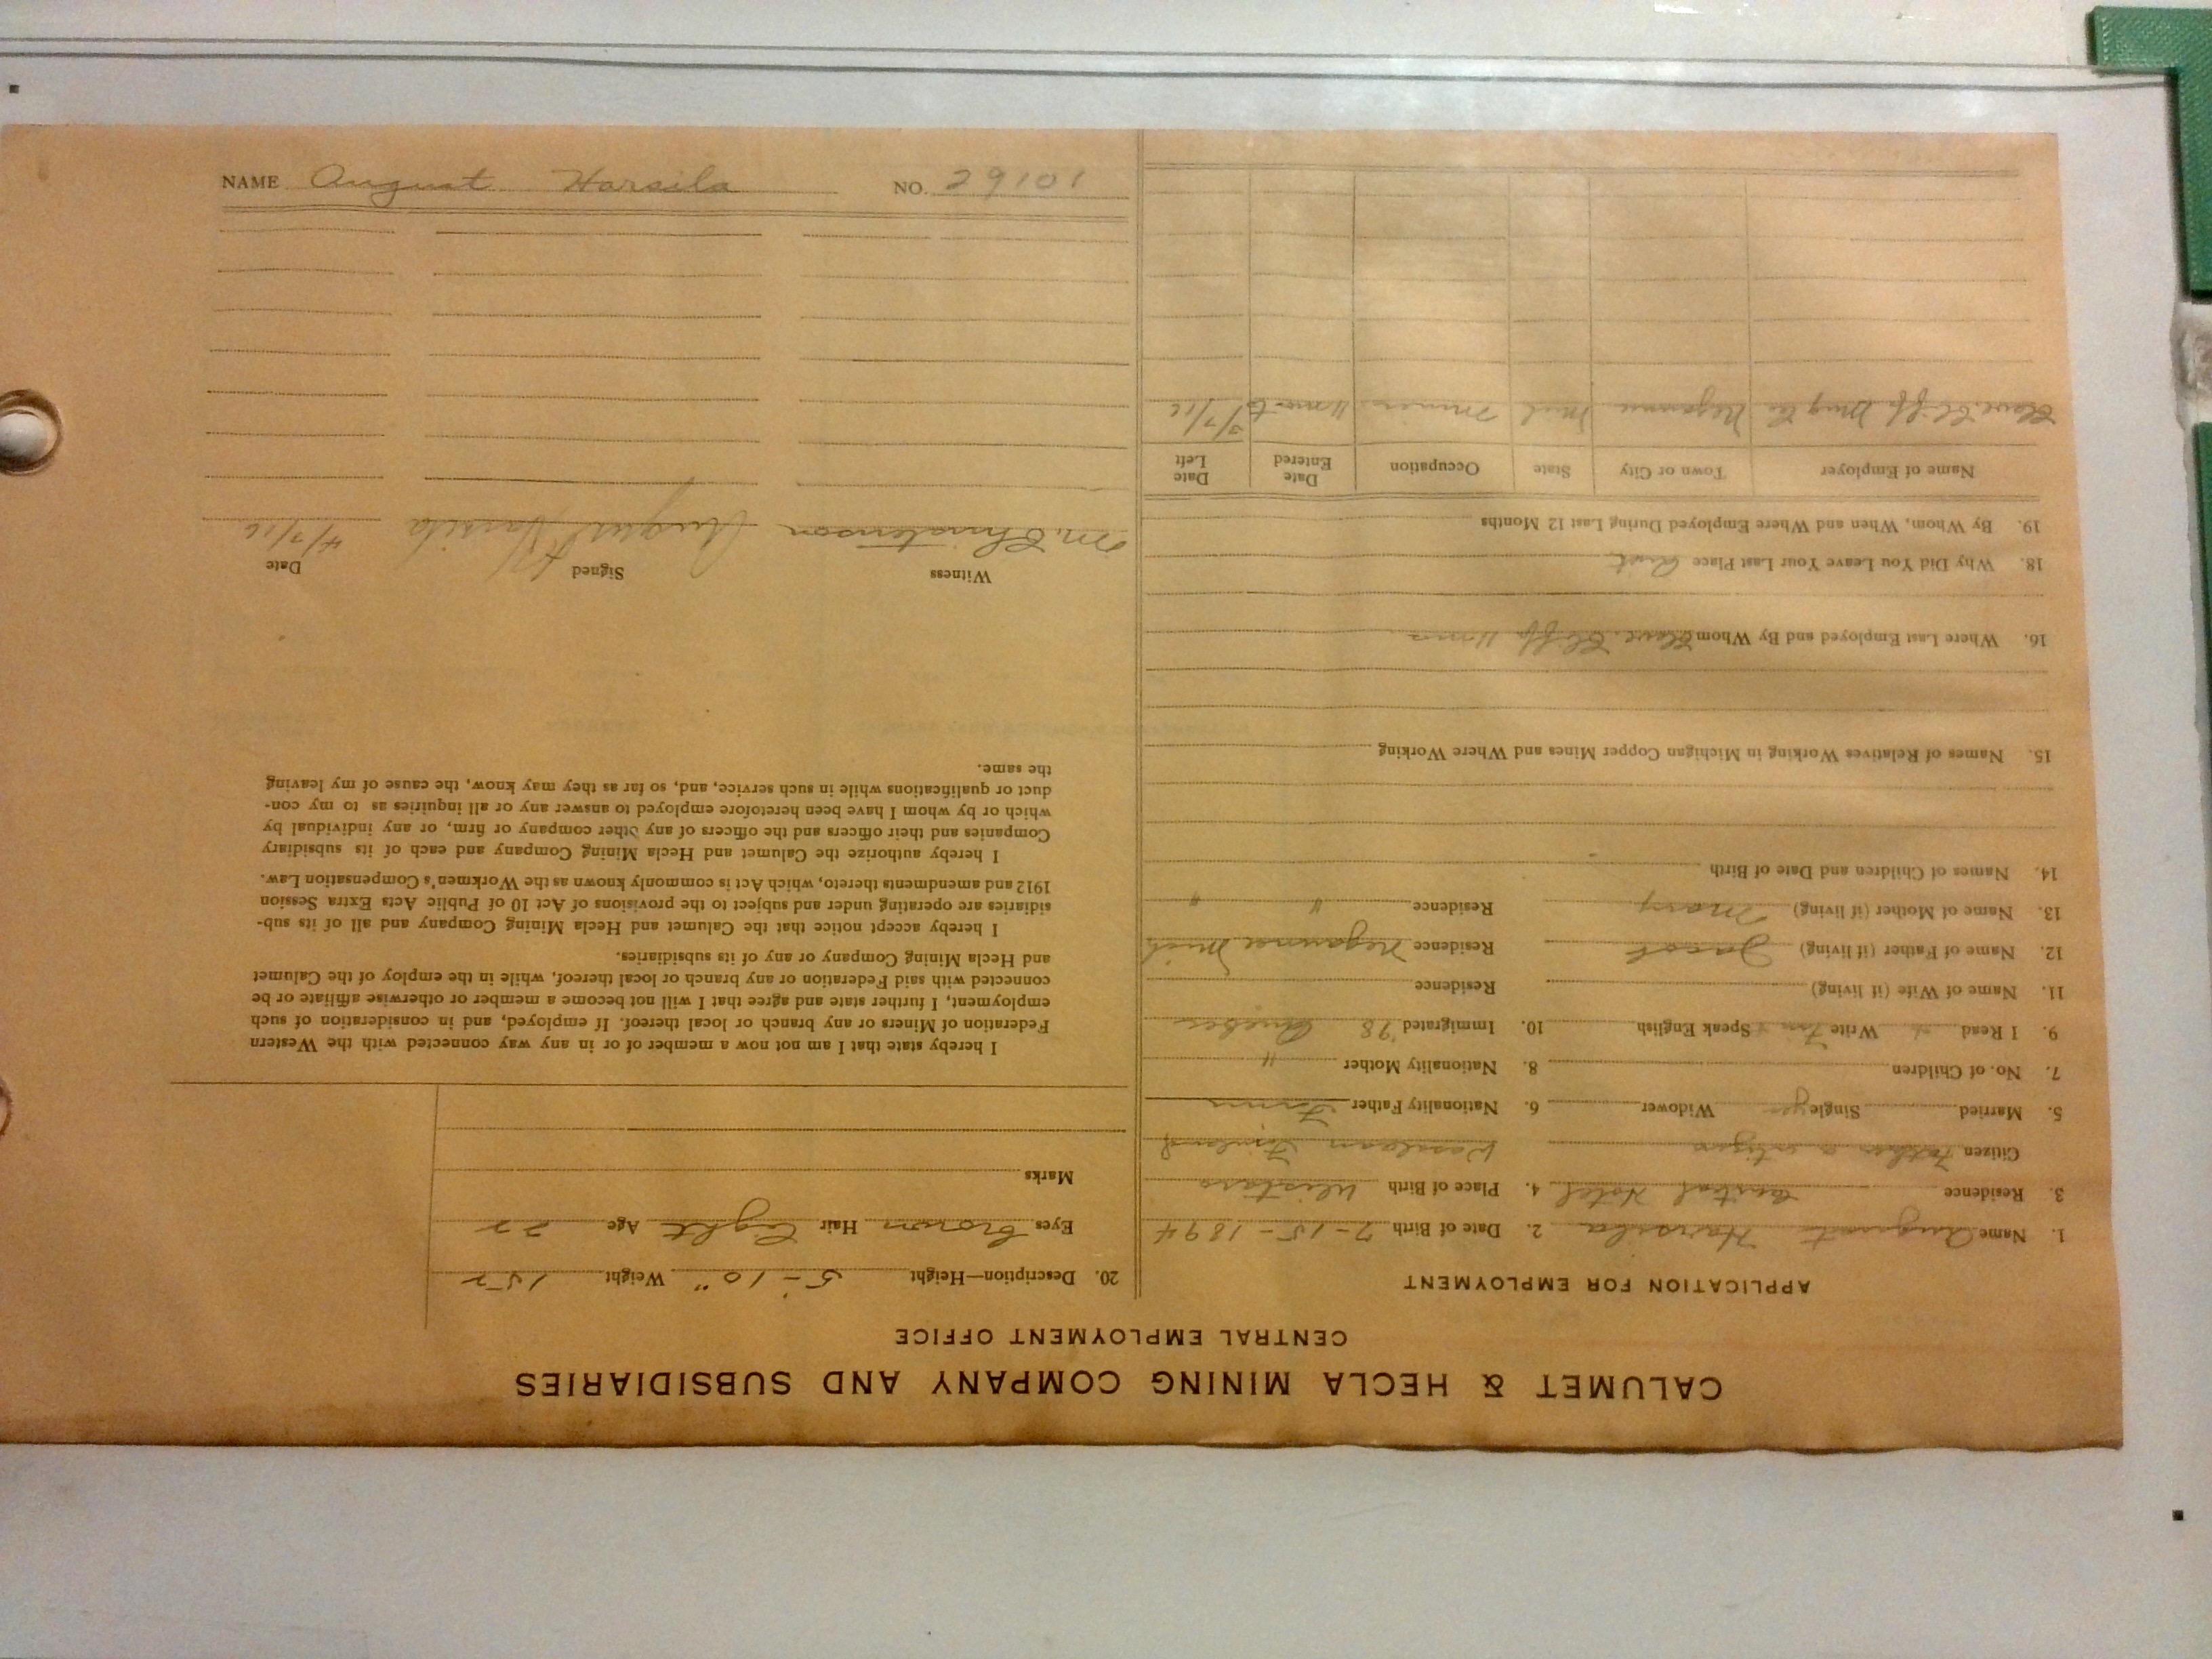 CALUMET & HECLA MINING COMPANY AND SUBSIDIARIES
CENTRAL EMPLOYMENT OFFICE
APPLICATION FOR EMPLOYMENT
1. Name August Harsila 2. Date of Birth 7-15-1894
3. Residence Central Hotel 4. Place of Birth
Citizen Father a citizen Finland
5. Married Single yes Widower 6. Nationality Father Finn
7. No. of Children 8. Nationality Mother "
9. I Read Write Finn Speak English 10. Immigrated '98 Quebec
11. Name of Wife (if living) Residence
12. Name of Father (if living) Jacob Residence Negaunee Mich
13. Name of Mother (if living) Mary Residence " "
14. Names of Children and Date of Birth
15. Names of Relatives Working in Michigan Copper Mines and Where Working
16. Where Last Employed and By Whom Cleve. Cliffs 11 mos
18. Why Did You Leave Your Last Place Quit
19. By Whom, When and Where Employed During Last 12 Months
Name of Employer Town or City State Occupation Date Entered Date Left
Cleve. Cliffs Mng Co Negaunee Mich Miner 11 mos to 3/7/16
20. Description—Height 5-10" Weight 152
Eyes Brown Hair Light Age 22
Marks
I hereby state that I am not now a member of or in any way connected with the Western
Federation of Miners or any branch or local thereof. If employed, and in consideration of such
employment, I further state and agree that I will not become a member or otherwise affiliate or be
connected with said Federation or any branch or local thereof, while in the employ of the Calumet
and Hecla Mining Company or any of its subsidiaries.
I hereby accept notice that the Calumet and Hecla Mining Company and all of its sub-
sidiaries are operating under and subject to the provisions of Act 10 of Public Acts Extra Session
1912 and amendments thereto, which Act is commonly known as the Workmen's Compensation Law.
I hereby authorize the Calumet and Hecla Mining Company and each of its subsidiary
Companies and their officers and the officers of any other company or firm, or any individual by
which or by whom I have been heretofore employed to answer any or all inquiries as to my con-
duct or qualifications while in such service, and, so far as they may know, the cause of my leaving
the same.
Witness Signed Date
M. Christenson August Harsila 4/7/16
NAME August Harsila NO. 29101